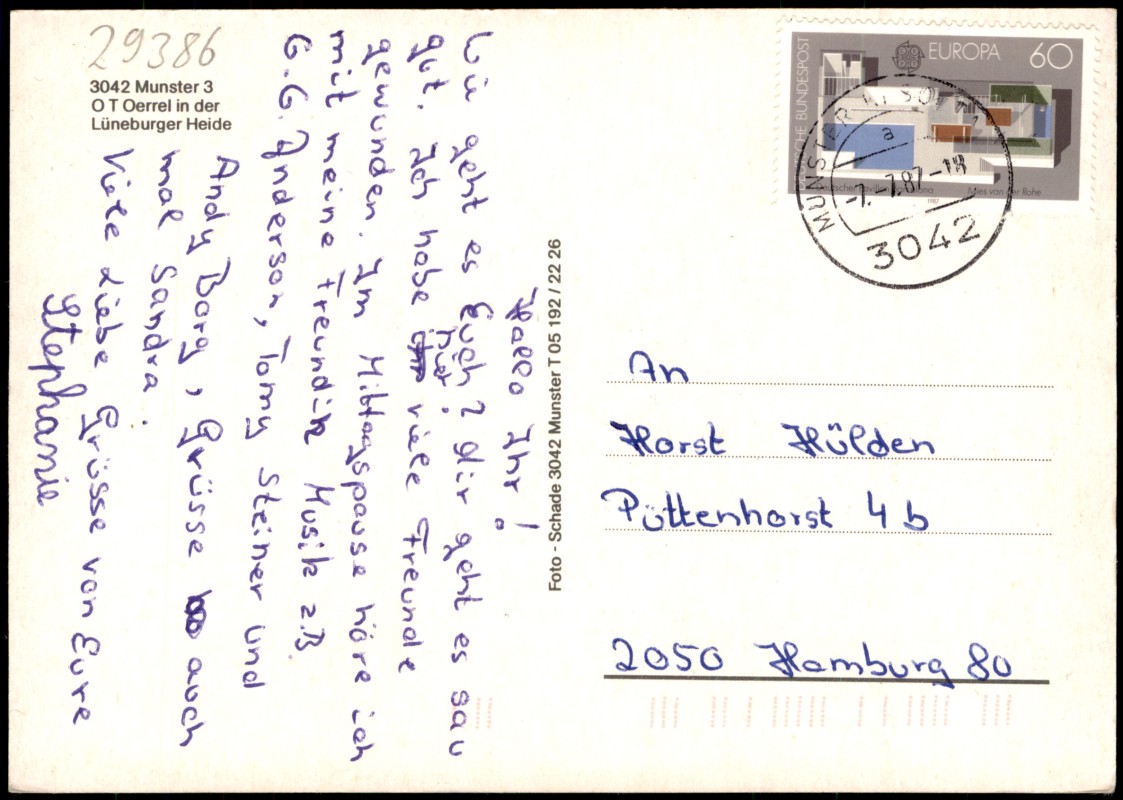 29386
3042 Munster 3
O T Oerrel in der
Lüneburger Heide
Hallo Ihr!
Wie geht es Euch? Mir geht es sau
gut. Ich habe hier viele Freunde
gewunden. Im Mittagspause höre ich
mit meine Freundin Musik z.B.
G.G. Anderson, Tomy Steiner und
Andy Borg, Grüsse auch
mal Sandra.
Viele Liebe Grüsse von Eure
Stephanie
Foto - Schade 3042 Munster T 05 192 / 22 26
DEUTSCHE BUNDESPOST
EUROPA 60
Deutscher Pavillon Barcelona
Mies van der Rohe
1987
MUNSTER
a
-7.-7.87-18
3042
An
Horst Hülden
Püttenhorst 4 b
2050 Hamburg 80